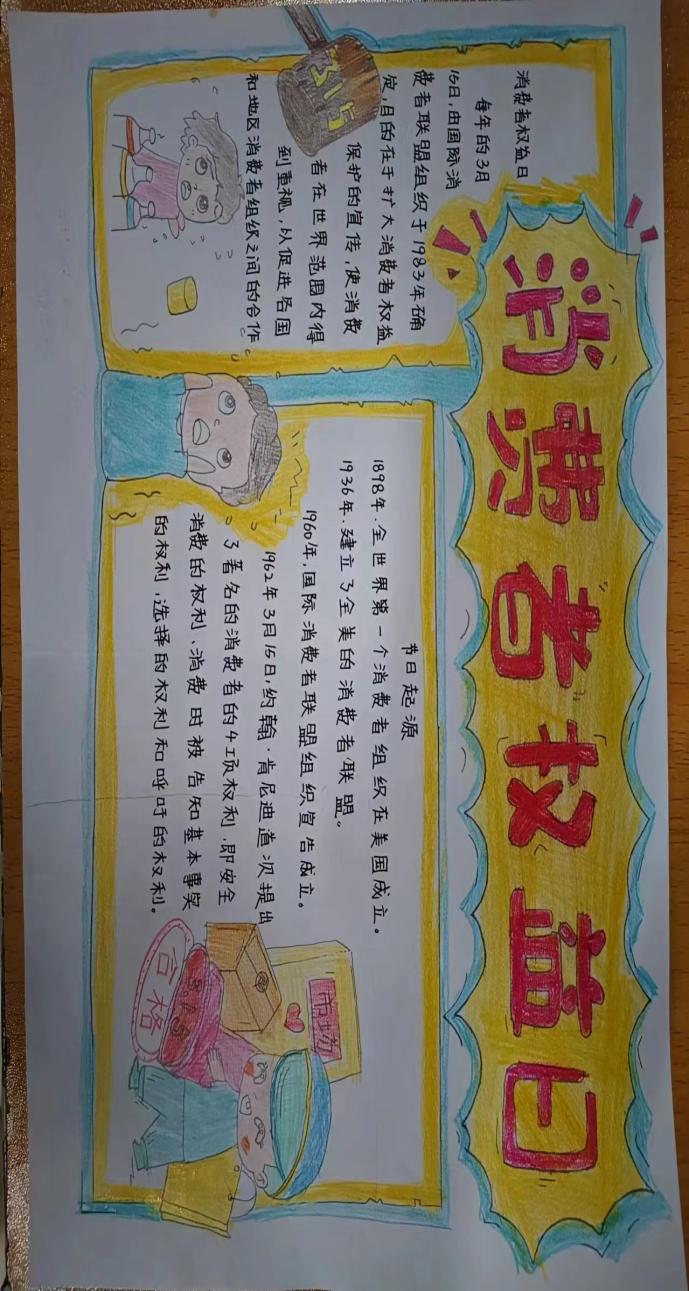 消费者权益日
消费者权益日
每年的3月
15日,由国际消
费者联盟组织于1983年确
定,目的在于扩大消费者权益
保护的宣传,使消费
者在世界范围内得
到重视,以促进各国
和地区消费者组织之间的合作
315
节日起源
1898年.全世界第一个消费者组织在美国成立。
1936年.建立了全美的消费者联盟。
1960年,国际消费者联盟组织宣告成立。
1962年3月15日,约翰·肯尼迪首次提出
了著名的消费者的4项权利.即安全
消费的权利、消费时被告知基本事实
的权利,选择的权利和呼吁的权利。
3.15
合格